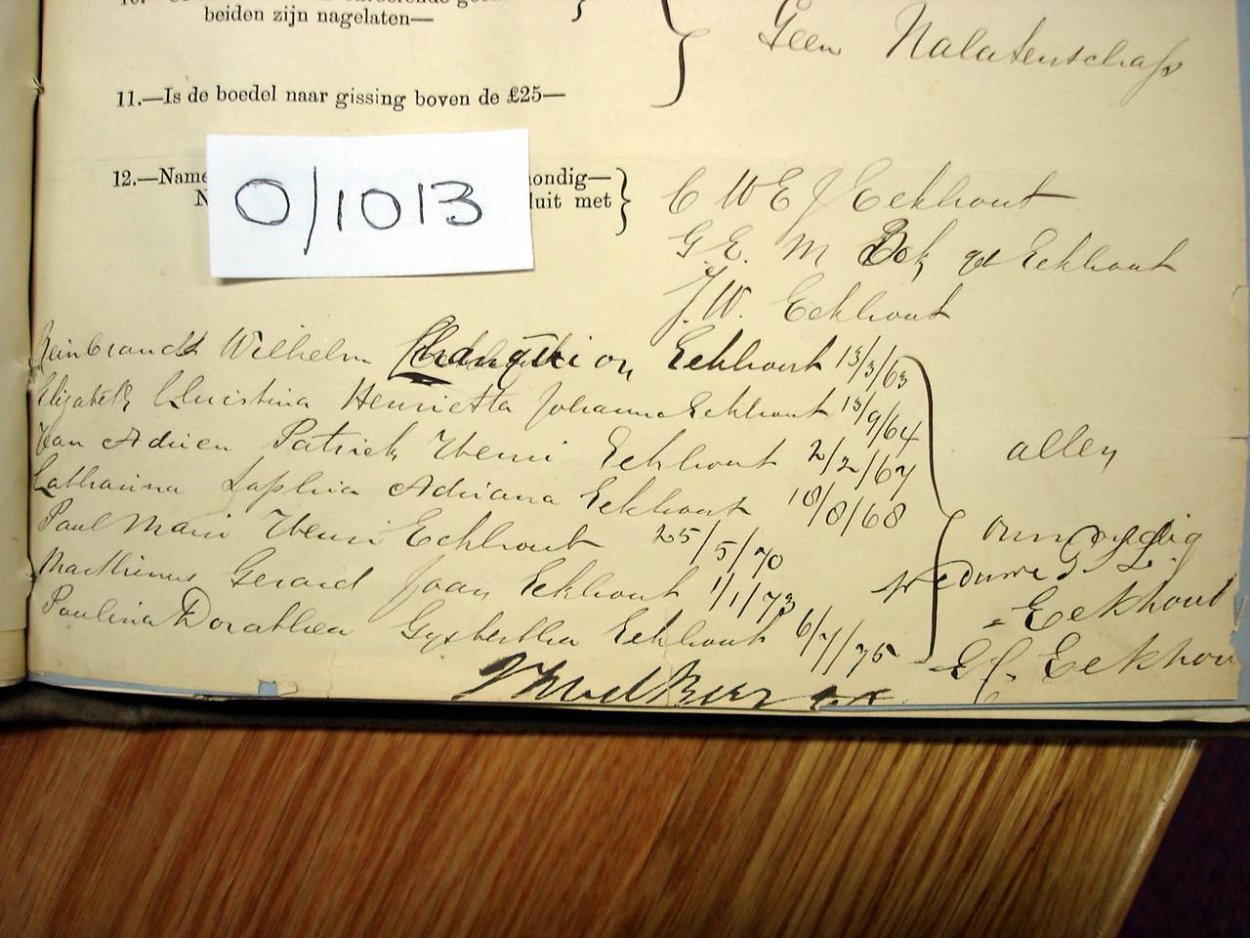 beiden zijn nagelaten—
Geen Nalatenschap
11.—Is de boedel naar gissing boven de £25—
12.—Name ondig—
N luit met
O/1013
C W E J Eekhout
G. E. M Bok gd Eekhout
J. W. Eekhout
Reinbrandt Wilhelm Changuion Eekhout 13/3/63
Elizabeth Christina Henrietta Johanna Eekhout 13/9/64
Jan Adrien Patrick Henri Eekhout 2/2/67
Catharina Sophia Adriana Eekhout 18/8/68
Paul Marie Henri Eekhout 25/5/70
Marthinus Gerard Joan Eekhout 1/1/73
Paulina Dorathea Gysbertha Eekhout 6/7/75
allen
onmondig
Weduwe G. L.
Eekhout
Eekhou